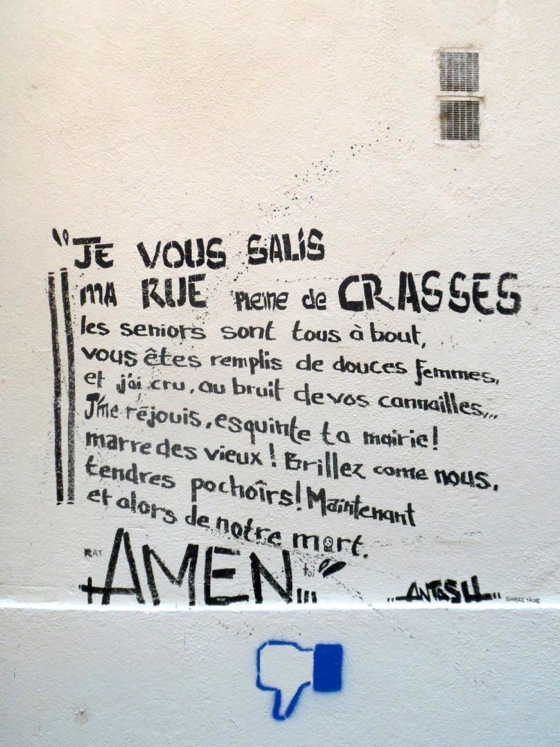 "JE VOUS SALIS
MA RUE pleine de CRASSES
les seniors sont tous à bout,
vous êtes remplis de douces femmes,
et j'ai cru, au bruit de vos cannailles...
J'me réjouis, esquinte ta mairie!
marre des vieux! Brillez come nous,
tendres pochoîrs! Maintenant
et alors de notre mort.
RAY AMEN..."
..ANTASH..